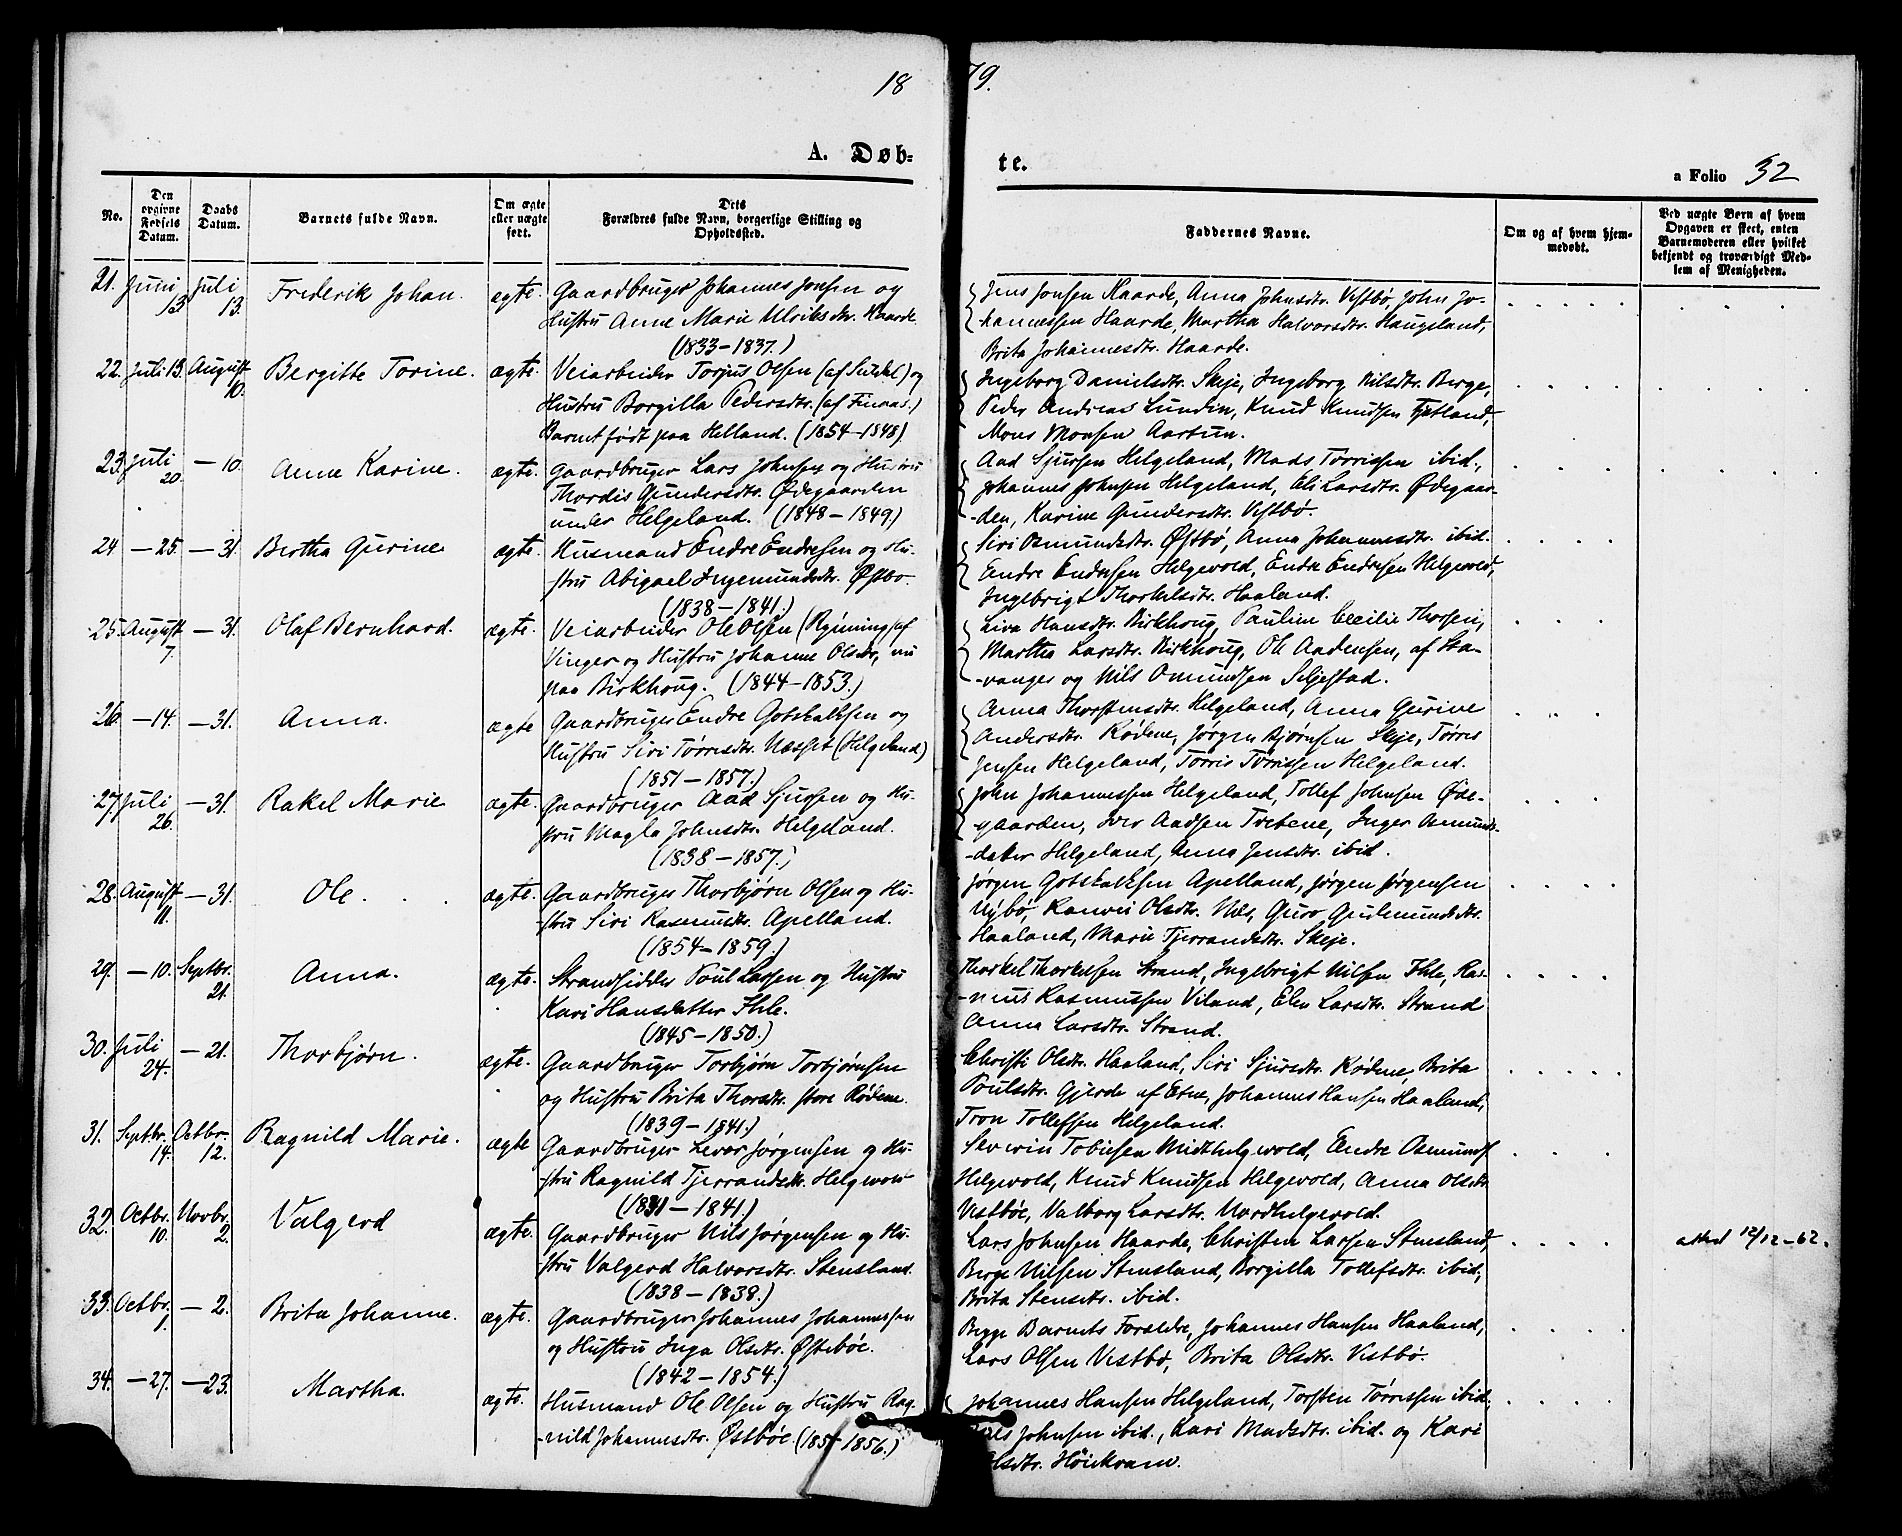 1879.
A. Døbte.
a Folio 32
No.
Den opgivne Fødsels Datum.
Daabs Datum.
Barnets fulde Navn.
Om ægte eller uægte født.
Dets Forældres fulde Navn, borgerlige Stilling og Opholdssted.
Faddernes Navne.
Om og af hvem hjemmedøbt.
Ved uægte Børn af hvem Opgaven er skeet, enten Barnemoderen eller hvilket bekjendt og troværdigt Medlem af Menigheden.
21. Juni 13. Juli 13. Frederik Johan. egte. Gaardbruger Johannes Jonsen og
Hustru Anne Marie Ulriksdtr. Haarde.
(1833-1837.)
Jens Jonsen Haarde, Anna Johnsdtr. Vestbø, John Jo-
hannessen Haarde, Martha Halvorsdtr. Haugeland,
Brita Johannesdtr. Haarde.
22. Juli 13. August 10. Bergitte Torine. ægte. Veiarbeider Torjus Olsen (af Suldal) og
Hustru Borgilla Pedersdtr. (af Finaas.)
Barnet født paa Helland. (1854-1848)
Ingeborg Danielsdtr. Skeje, Ingeborg Nilsdtr. Berge,
Peder Andreas Lundin, Knud Knudsen Tjetland,
Mons Monsen Aartun.
23. Juli 20. -10. Anne Karine. ægte. Gaardbruger Lars Johnsen og Hustru
Thordis Gundersdtr. Ødegaarden
under Helgeland. (1848-1849.)
Aad Sjursen Helgeland, Mads Torrissen ibid.,
Johannes Johnsen Helgeland, Eli Larsdtr. Ødegaar-
-den, Karine Gundersdtr. Vestbø.
24 -25. -31. Bertha Gurine ægte. Husmand Endre Endresen og Hu-
stru Abigael Ingemundsdtr. Østbø.
(1838-1841.)
Siri Osmundsdtr. Østbø, Anna Johannesdtr. ibid.
Endre Endresen Helgevold, Endre Endresen Helgevold,
Ingebrigt Thorkelsdtr. Haaland.
25. August 7. -31. Olaf Bernhard. ægte. Veiarbeider Ole Olsen (Rynning) af
Vinger og Hustru Johanne Olsdtr, nu
paa Birkhoug. (1844-1853.)
Liva Hansdtr. Birkhoug, Pauline Cecilie Thorsen,
Martha Larsdtr. Birkhoug, Ole Aadensen, af Sta-
-vanger og Nils Omundsen Seljestad.
26. -14. -31. Anna. ægte Gaardbruger Endre Gotskalksen og
Hustru Siri Tørresdtr. Næsset (Helgeland)
(1851-1857.)
Anna Thorstensdtr. Helgeland, Anna Gurine
Andersdtr. Rødene, Jørgen Bjørnsen Skeje, Tørres
Jensen Helgeland, Torris Torrissen Helgeland.
27. Juli 26. -31. Rakel Marie ægte. Gaardbruger Aad Sjursen og Hu-
stru Magla Johnsdtr. Helgeland.
(1838-1857.)
John Johannessen Helgeland, Tollef Johnsen Øde-
gaarden, Iver Aadsen Tvetene, Inger Osmunds-
-datter Helgeland, Anna Jensdtr. ibid.
28. August 11. -31. Ole. ægte. Gaardbruger Thorbjørn Olsen og Hu-
-stru Siri Rasmusdtr. Apelland.
(1854-1859.)
Jørgen Gotskalksen Apelland, Jørgen Jørgensen
Nybø, Ranvei Olsdtr. Guro Gudmundsdtr.
Haaland, Marie Tjerrandsdtr. Skeje.
29. -10. Septbr. 21. Anna. ægte. Strandsidder Poul Larsen og Hustru
Kari Hansdatter Ihle.
(1845-1850.)
Thorkel Thorkelsen Strand, Ingebrigt Nilsen Ihle, Ras-
-mus Rasmussen Viland, Elen Larsdtr. Strand
Anna Larsdtr. Strand.
30. Juli 24. -21. Thorbjørn. ægte. Gaardbruger Torbjørn Torbjørnsen
og Hustru Brita Thorsdtr. store Rødene.
(1839-1841.)
Christi Olsdtr. Haaland, Siri Sjursdtr. Rødene, Brita
Poulsdtr. Gjerde af Etne, Johannes Hansen Haaland,
Tron Tollefsen Helgeland.
31. Septbr. 14. Octbr. 12. Ragnild Marie. ægte Gaardbruger Levor Jørgensen og Hu-
stru Ragnild Tjerrandsdtr. Helgevold
(1841-1841.)
Severin Tobiesen Midthelgevold, Endre Osmunds.
Helgevold, Knud Knudsen Helgevold, Anna Olsdtr.
Vestbøe, Valborg Larsdtr. Nordhelgevold.
32. Octbr. 10. Novbr. 2. Valgerd ægte. Gaardbruger Nils Jørgensen og Hu-
stru Valgerd Halvorsdtr. Stensland.
(1838-1838.)
Lars Johnsen Haarde, Christen Larsen Stensland,
Berge Nilsen Stensland, Borgilla Tollefsdtr. ibid,
Brita Stensdtr. ibid.
12/12-62.
33. Octbr. 1. -2. Brita Johanne. ægte. Gaardbruger Johannes Johannessen
og Hustru Inga Olsdtr. Østebøe.
(1842-1854.)
Begge Barnets Forældre, Johannes Hansen Haaland,
Lars Olsen Vestbø, Brita Olsdtr. Vestbø.
34. -27. -23. Martha. ægte. Husmand Ole Olsen og Hustru Rag-
-nild Johannesdtr. Østbøe (185 -1856.)
Johannes Hansen Helgeland, Torsten Tørresen ibid.
Johnsen ibid., Kari Madsdtr. ibid. og Kari
Olsdtr. Høiekvam.